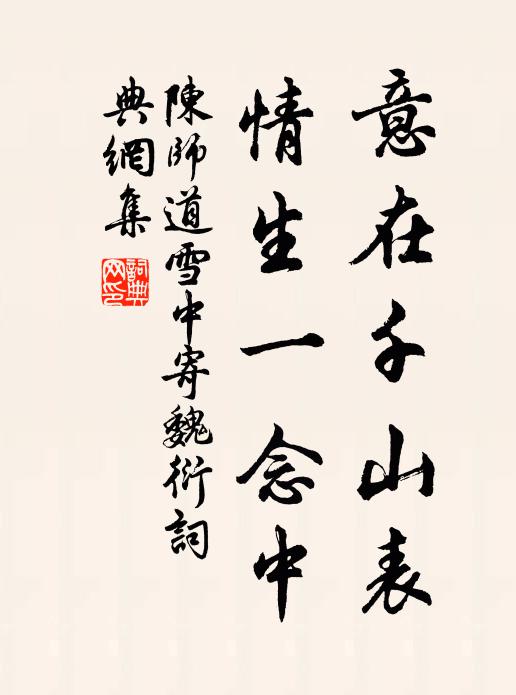 意在千山表
情生一念中
陳師道雪中寄魏衍詞
典網集
詞典网印